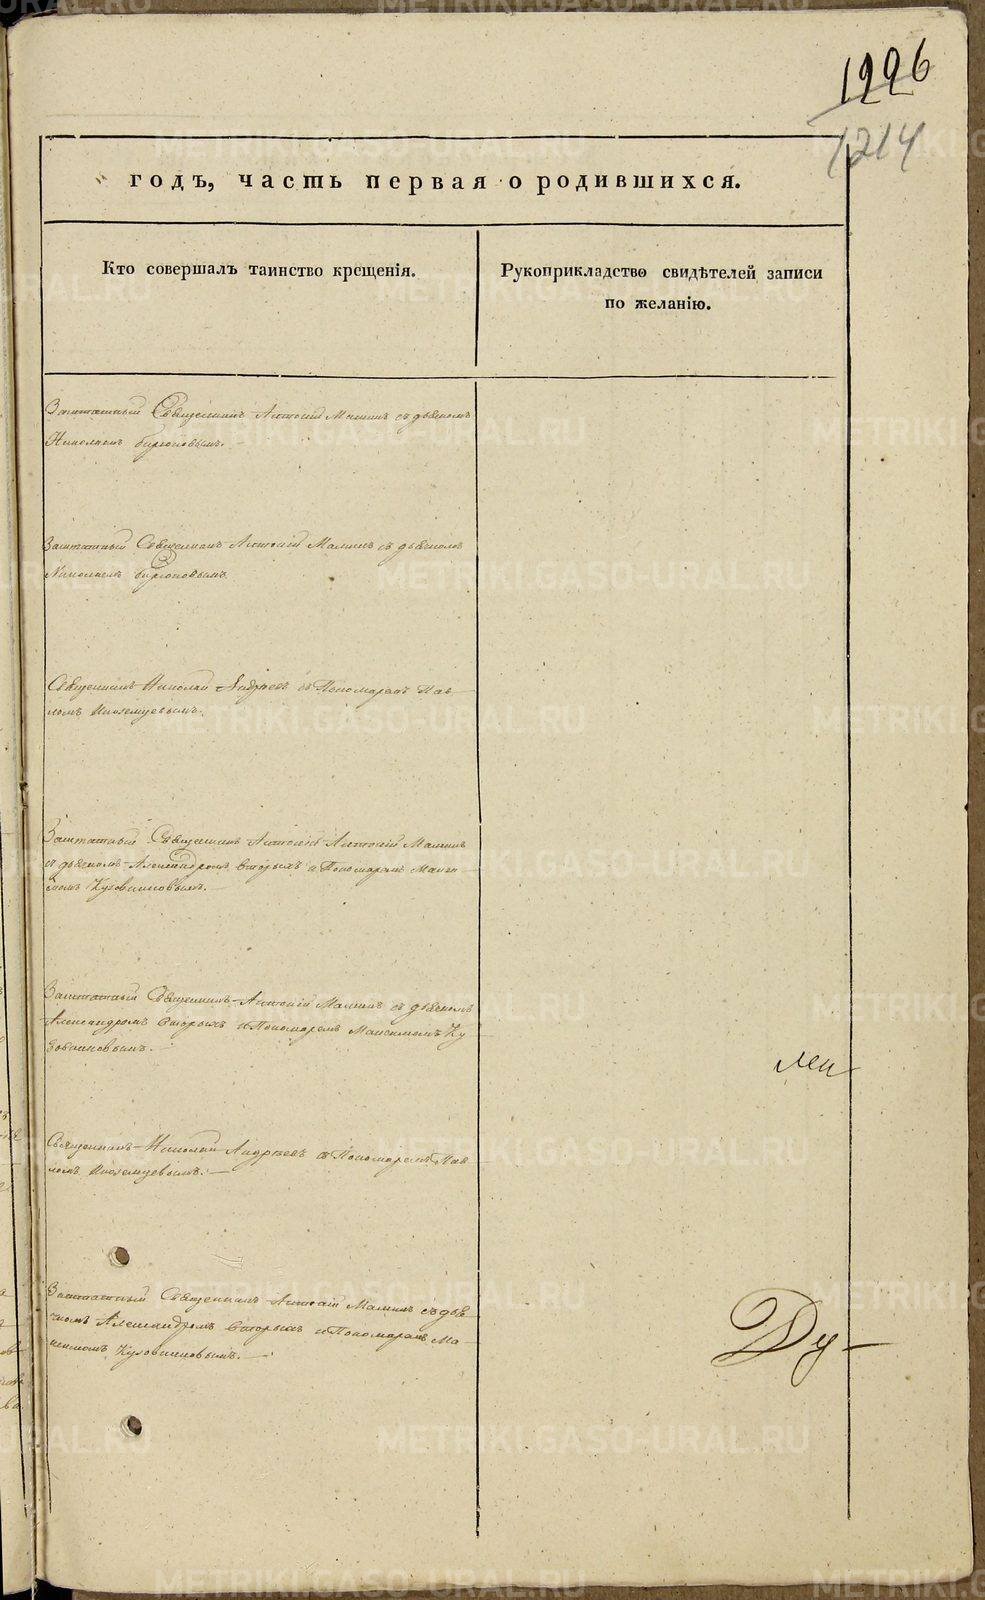 1226
1214
годъ, часть первая о родившихся.
Кто совершалъ таинство крещенія.
Рукоприкладство свидѣтелей записи
по желанію.
Заштатный Священникъ Антоній Маминъ съ дьякомъ
Николаемъ Бирюковымъ.
Заштатный Священникъ Антоній Маминъ съ дьякомъ
Николаемъ Бирюковымъ
Священникъ Николай Андреевъ съ Пономаремъ Пав-
ломъ Иноземцевымъ.
Заштатный Священникъ Антоній Антоній Маминъ
съ дьякомъ Александромъ Вторыхъ и Пономаремъ Макси
момъ Кузовниковымъ.
Заштатный Священникъ Антоній Маминъ съ дьякомъ
Александромъ Вторыхъ и Пономаремъ Максимомъ Ку
зовниковымъ.
Священникъ Николай Андреевъ съ Пономаремъ Пав
ломъ Иноземцевымъ.
Заштатный Священникъ Антоній Маминъ съ дья
комъ Александромъ Вторыхъ и Пономаремъ Ма-
ксимомъ Кузовниковымъ.
Ду-
METRIKI.GASO-URAL.RU